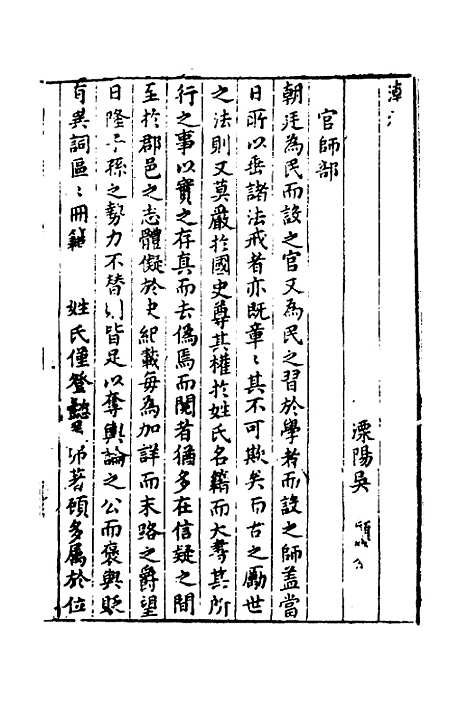 漳
溧陽吳
官師部
朝廷為民而設之官又為民之習於學者而設之師蓋當
日所以垂諸法戒者亦既章〻其不可欺矣而古之勵世
之法則又莫嚴於國史尊其權於姓氏名籍而大書其所
行之事以實之存真而去偽焉而閱者猶多在信疑之間
至於郡邑之志體儗於史紀載每為加詳而末路之爵望
日隆子孫之勢力不替則皆足以奪輿論之公而褒與貶
有異詞區〻冊籍 姓氏僅登懿 著頓多屬於位